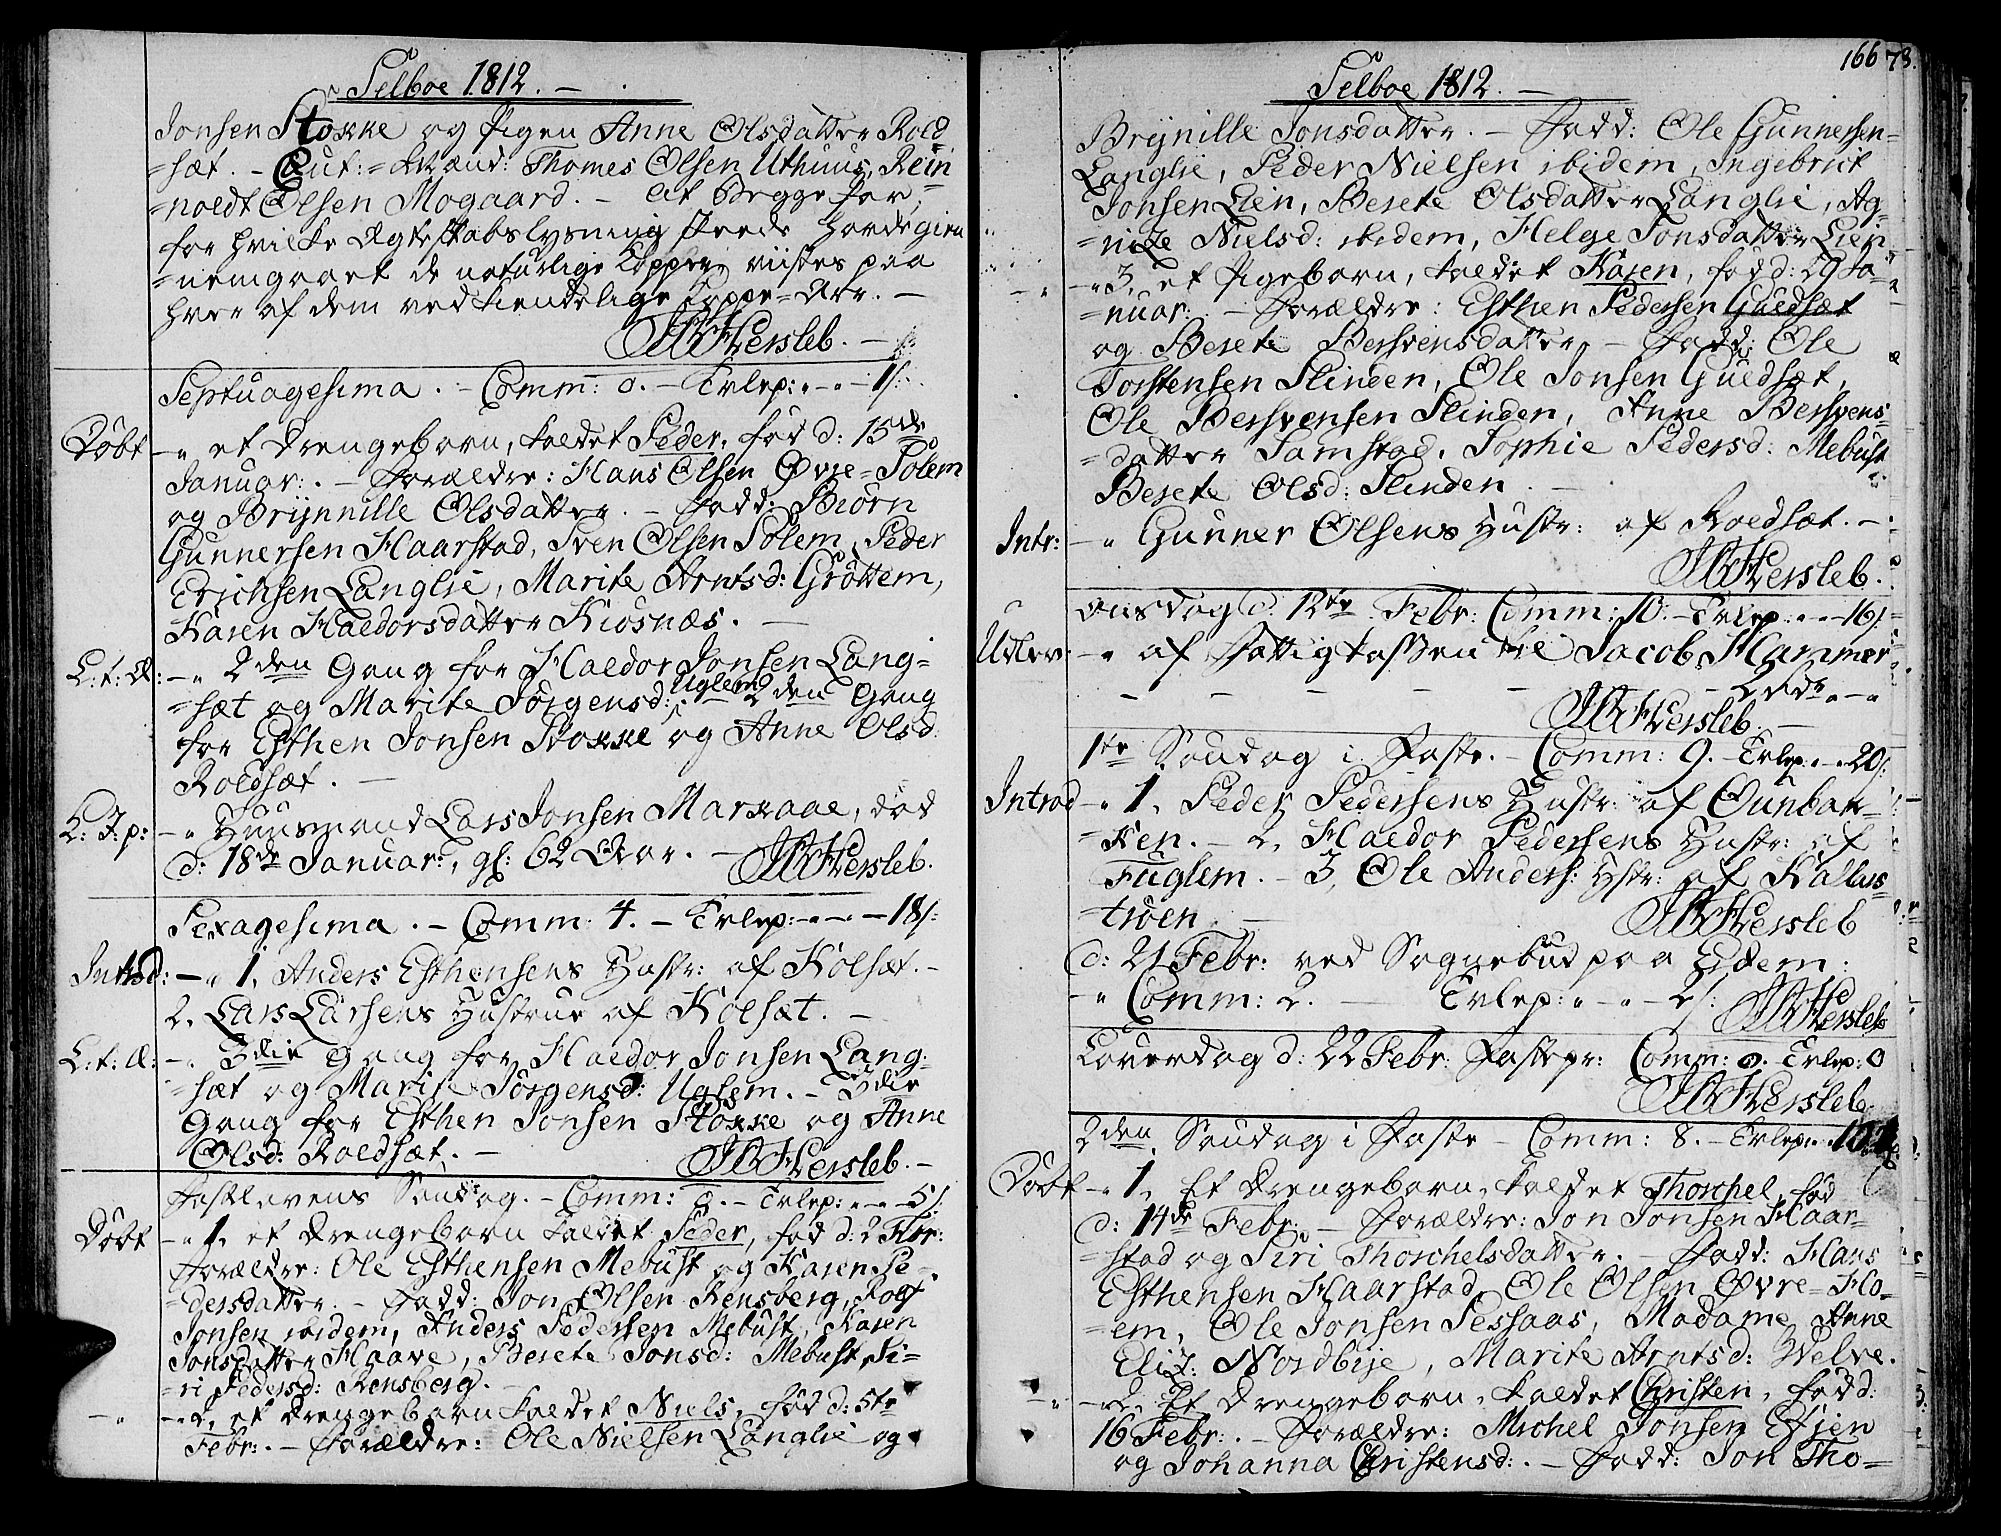 Selboe 1812. –
Jonsen Stokke og Pigen Anne Olsdatter Rold
=sæt. – Caut:=Mænd: Thomes Olsen Uthuus, Rein
=noldt Olsen Mogaard. – At Begge før,
for hvilke Ægteskabslysning skeede havde gien
=nemgaaet de naturlige Kopper, viistes paa
hver af dem ved kiendelige Koppe=Arr. –
Hersleb. –
Septuagesima. – Comm: 0. – Erlep: " – " – 1/:
Døbt – " et Drengebarn, kaldet Peder, fød d: 15de
Januar:. – Forældre: Hans Olsen Øvre=Solem
og Brynnille Olsdatter. – Fadd: Biørn
Gunnersen Haarstad, Sven Olsen Solem, Peder
Erichsen Langlie, Marite Arntsd: Grøttem,
Karen Haldorsdatter Kiøsnæs. –
L: t: Æ: – " 2den Gang for Haldor Jonsen Lang=
=sæt og Marite Jørgensd: Uglem – 2den Gang
for Esthen Jonsen Stokke og Anne Olsd:
Roldsæt. –
L: J: p: – " Huusmand Lars Jonsen Markaae, død
d: 18de Januar:, gl: 62 Aar. – Hersleb.
Sexagesima. – Comm: 4. – Erlep: – " – " – 18/:
Introd: – " 1, Anders Esthensens Hustr: af Kolsæt. –
2. Lars Larsens Hustrue af Kolsæt. –
L: t: Æ: – " 3die Gang for Haldor Jonsen Lang=
=sæt og Marit Jørgensd: Uglem. – 3die
Gang for Esthen Jonsen Stokke og Anne
Olsd: Roldsæt. – Hersleb. –
Fastelavens Søndag. – Comm: 0. – Erlep: " – " – 5/:
Døbt – " 1, et Drengebarn kaldet Peder, fød d: 2 Febr:
Forældre: Ole Esthensen Mebust og Karen Pe=
=dersdatter. – Fadd: Jon Olsen Rensberg, Rolf
Jonsen ibidem, Anders Pedersen Mebust, Karen
Jonsdatter Haave, Berete Jonsd: Mebust, Si=
=ri Pedersd: Rensberg.
– " – " 2, et Drengebarn kaldet Niels, fød d: 5te
Febr:. – Forældre: Ole Nielsen Langlie og
166 78.
Selboe 1812. –
Brynille Jonsdatter. – Fadd: Ole Gunnersen
Langlie, Peder Nielsen ibidem, Ingebrict
Jonsen Lien, Berete Olsdatter Langlie, Ag=
=nize Nielsd: ibidem, Helge Jonsdatter Lien
– " 3, et Pigebarn, kaldet Karen, fød d: 29 Ja=
=nuar:. – Forældre: Esthen Pedersen Guldsæt
og Berete Bersvensdatter. – Fadd: Ole
Torstensen Slinden, Ole Jonsen Guldsæt,
Ole Bersvensen Slinden, Anne Bersvens=
=datter Samstad, Sophie Pedersd: Mebust
Berete Olsd: Slinden. –
Intr: – " Gunner Olsens Hustr: af Roldsæt. –
Hersleb.
Onsdag d: 12te Febr: Comm: 10. – Erlep: " – " – 16/:
Udlev: – " af Fattigkassen til Jacob Hammer
– – – – – – 2 Rd " – "
Hersleb. –
1te Søndag i Faste. – Comm: 9. – Erlep: " – " 20/:
Introd – " 1, Peder Pedersens Hustr: af Ounbak=
=ken. – 2, Haldor Pedersens Hustr: af
Fuglem. – 3, Ole Anders: Hstr: af Kallus=
=trøen. – Hersleb
d: 21 Febr: ved Sognebud paa Eidem:
– " Comm: 2. – Erlep: " – " – 2/: Hersleb
Løverdag d: 22 Febr: Fastepr: Comm: 0. Erlep: 0
Hersleb.
2den Søndag i Faste – Comm: 8. – Erlep: " –
Døbt – " 1, Et Drengebarn, kaldet Thorchel, fød
d: 14de Febr: – Forældre: Jon Jonsen Haar=
=stad og Siri Thorchelsdatter. – Fadd: Hans
Esthensen Haarstad, Ole Olsen Øvre=Ho=
=em, Ole Jonsen Sessaas, Madame Anne
Eliz: Nordbye, Marite Arntsd: Velve.
– " – " 2, Et Drengebarn, kaldet Christen, fød d:
16 Febr:. – Forældre: Michel Jonsen Evjen
og Johanna Christensd:. – Fadd: Jon Tho=